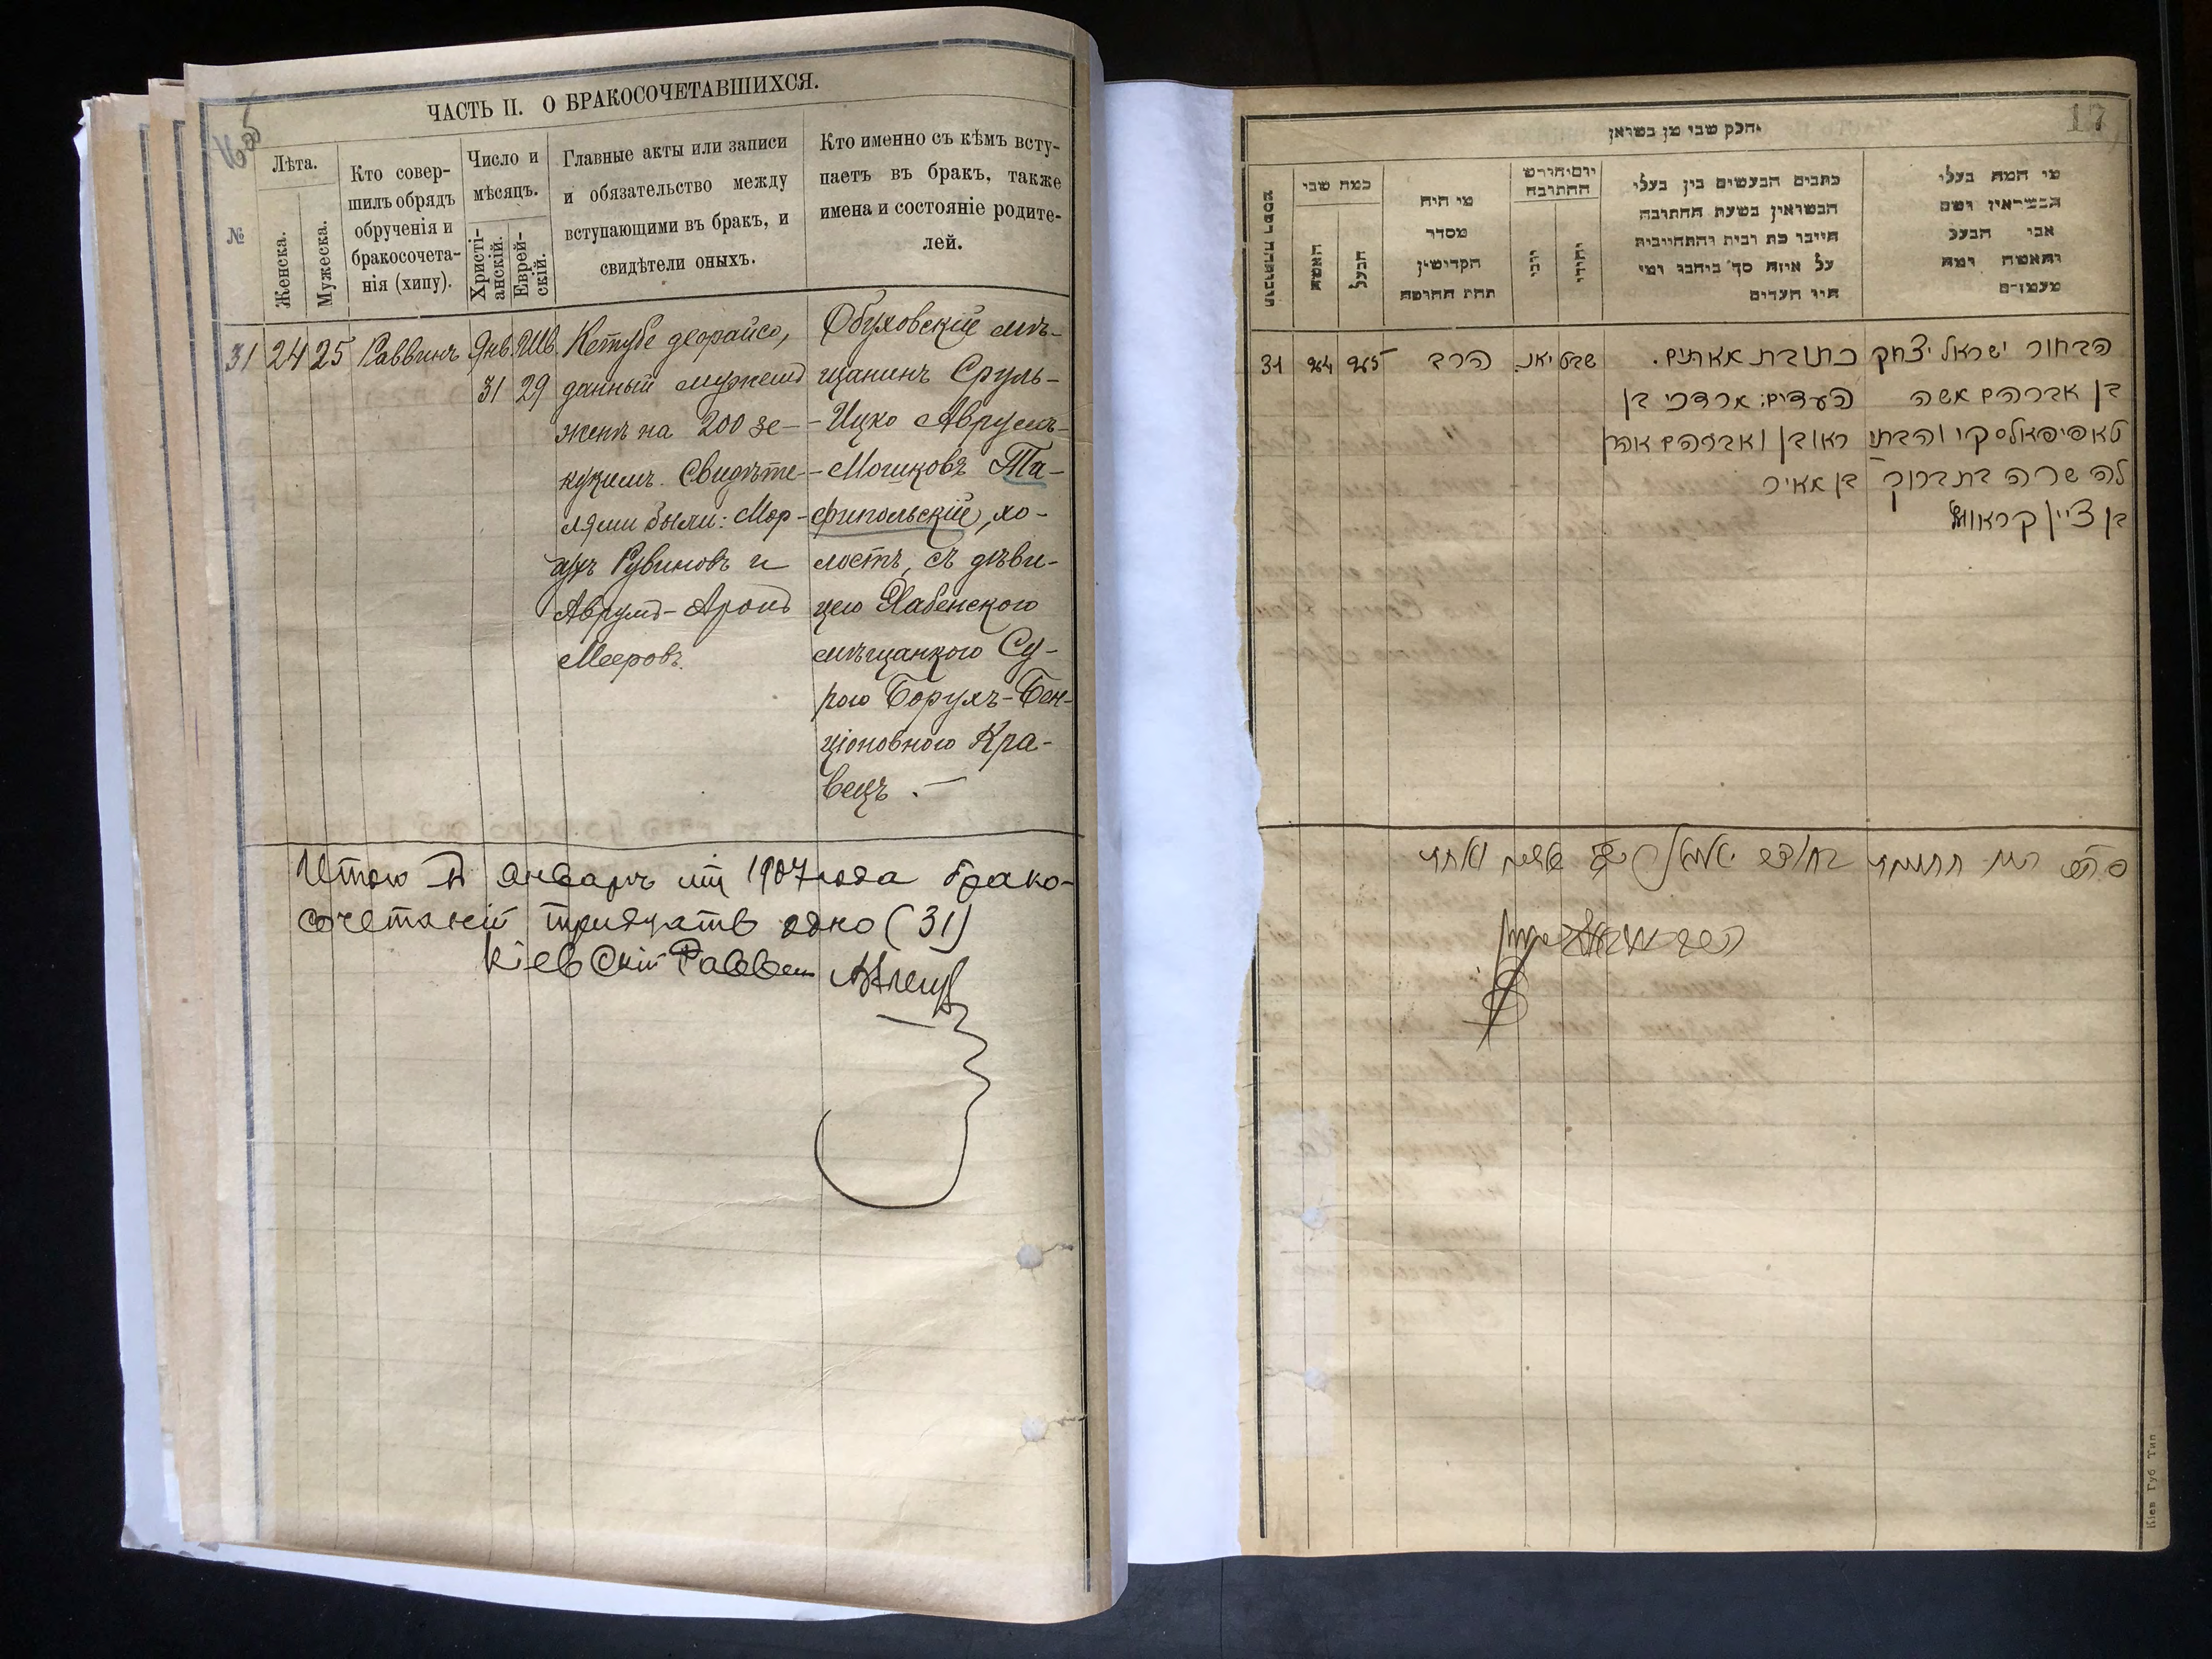 ЧАСТЬ II. О БРАКОСОЧЕТАВШИХСЯ.
№
Лѣта.
Женска.
Мужеска.
Кто совер-
шилъ обрядъ
обрученія и
бракосочета-
нія (хипу).
Число и
мѣсяцъ.
Христі-
анскій.
Еврей-
скій.
Главные акты или записи
и обязательство между
вступающими въ бракъ, и
свидѣтели оныхъ.
Кто именно съ кѣмъ всту-
паетъ въ бракъ, также
имена и состояніе родите-
лей.
31
24
25
Раввинъ
Янв.
31
Шв.
29
Кетубе деорайсо,
данный мужемъ
женѣ на 200 зе-
кукимъ. Свидѣте-
лями были: Мор-
духъ Рувиновъ и
Аврумъ-Аронъ
Мееровъ.
Обуховскій мѣ-
щанинъ Сруль-
-Ицко Аврумъ-
-Мошковъ Та-
фипольскій, хо-
лостъ, съ дѣви-
цею Хабенского
мѣщанкою Су-
рою Борухъ-Бен-
ціоновною Кра-
вецъ.—
Итого въ январѣ мц 1907 года брако-
сочетаній тридцать одно (31)
Кіевскій Раввинъ
17
חלק שני מן נשואין
כמה שני
הבעל
מי היה
מסדר
הקדושין
תחת החופה
יום וחודש
החתונה
יוני
יהודי
כתבים הנעשים בין בעלי
הנשואין בשעת החתונה
חייבו כת ובית והתחייבות
על איזה סך ביניהם ומי
היו העדים
מי המה בעלי
הנשואין ושם
אבי הבעל
והאשה ומה
מעמדם
31
24
25
הרב
יאנ.
שבט
כתובת מאתים.
העדים: מרדכי בן
ראובן ואברהם אהרן
בן מאיר
הבחור ישראל יצחק
בן אברהם משה
טאפיפאלסקי והבתו
לה שרה בת ברוך
בן ציין קראוועץ
Кіев Губ Тип